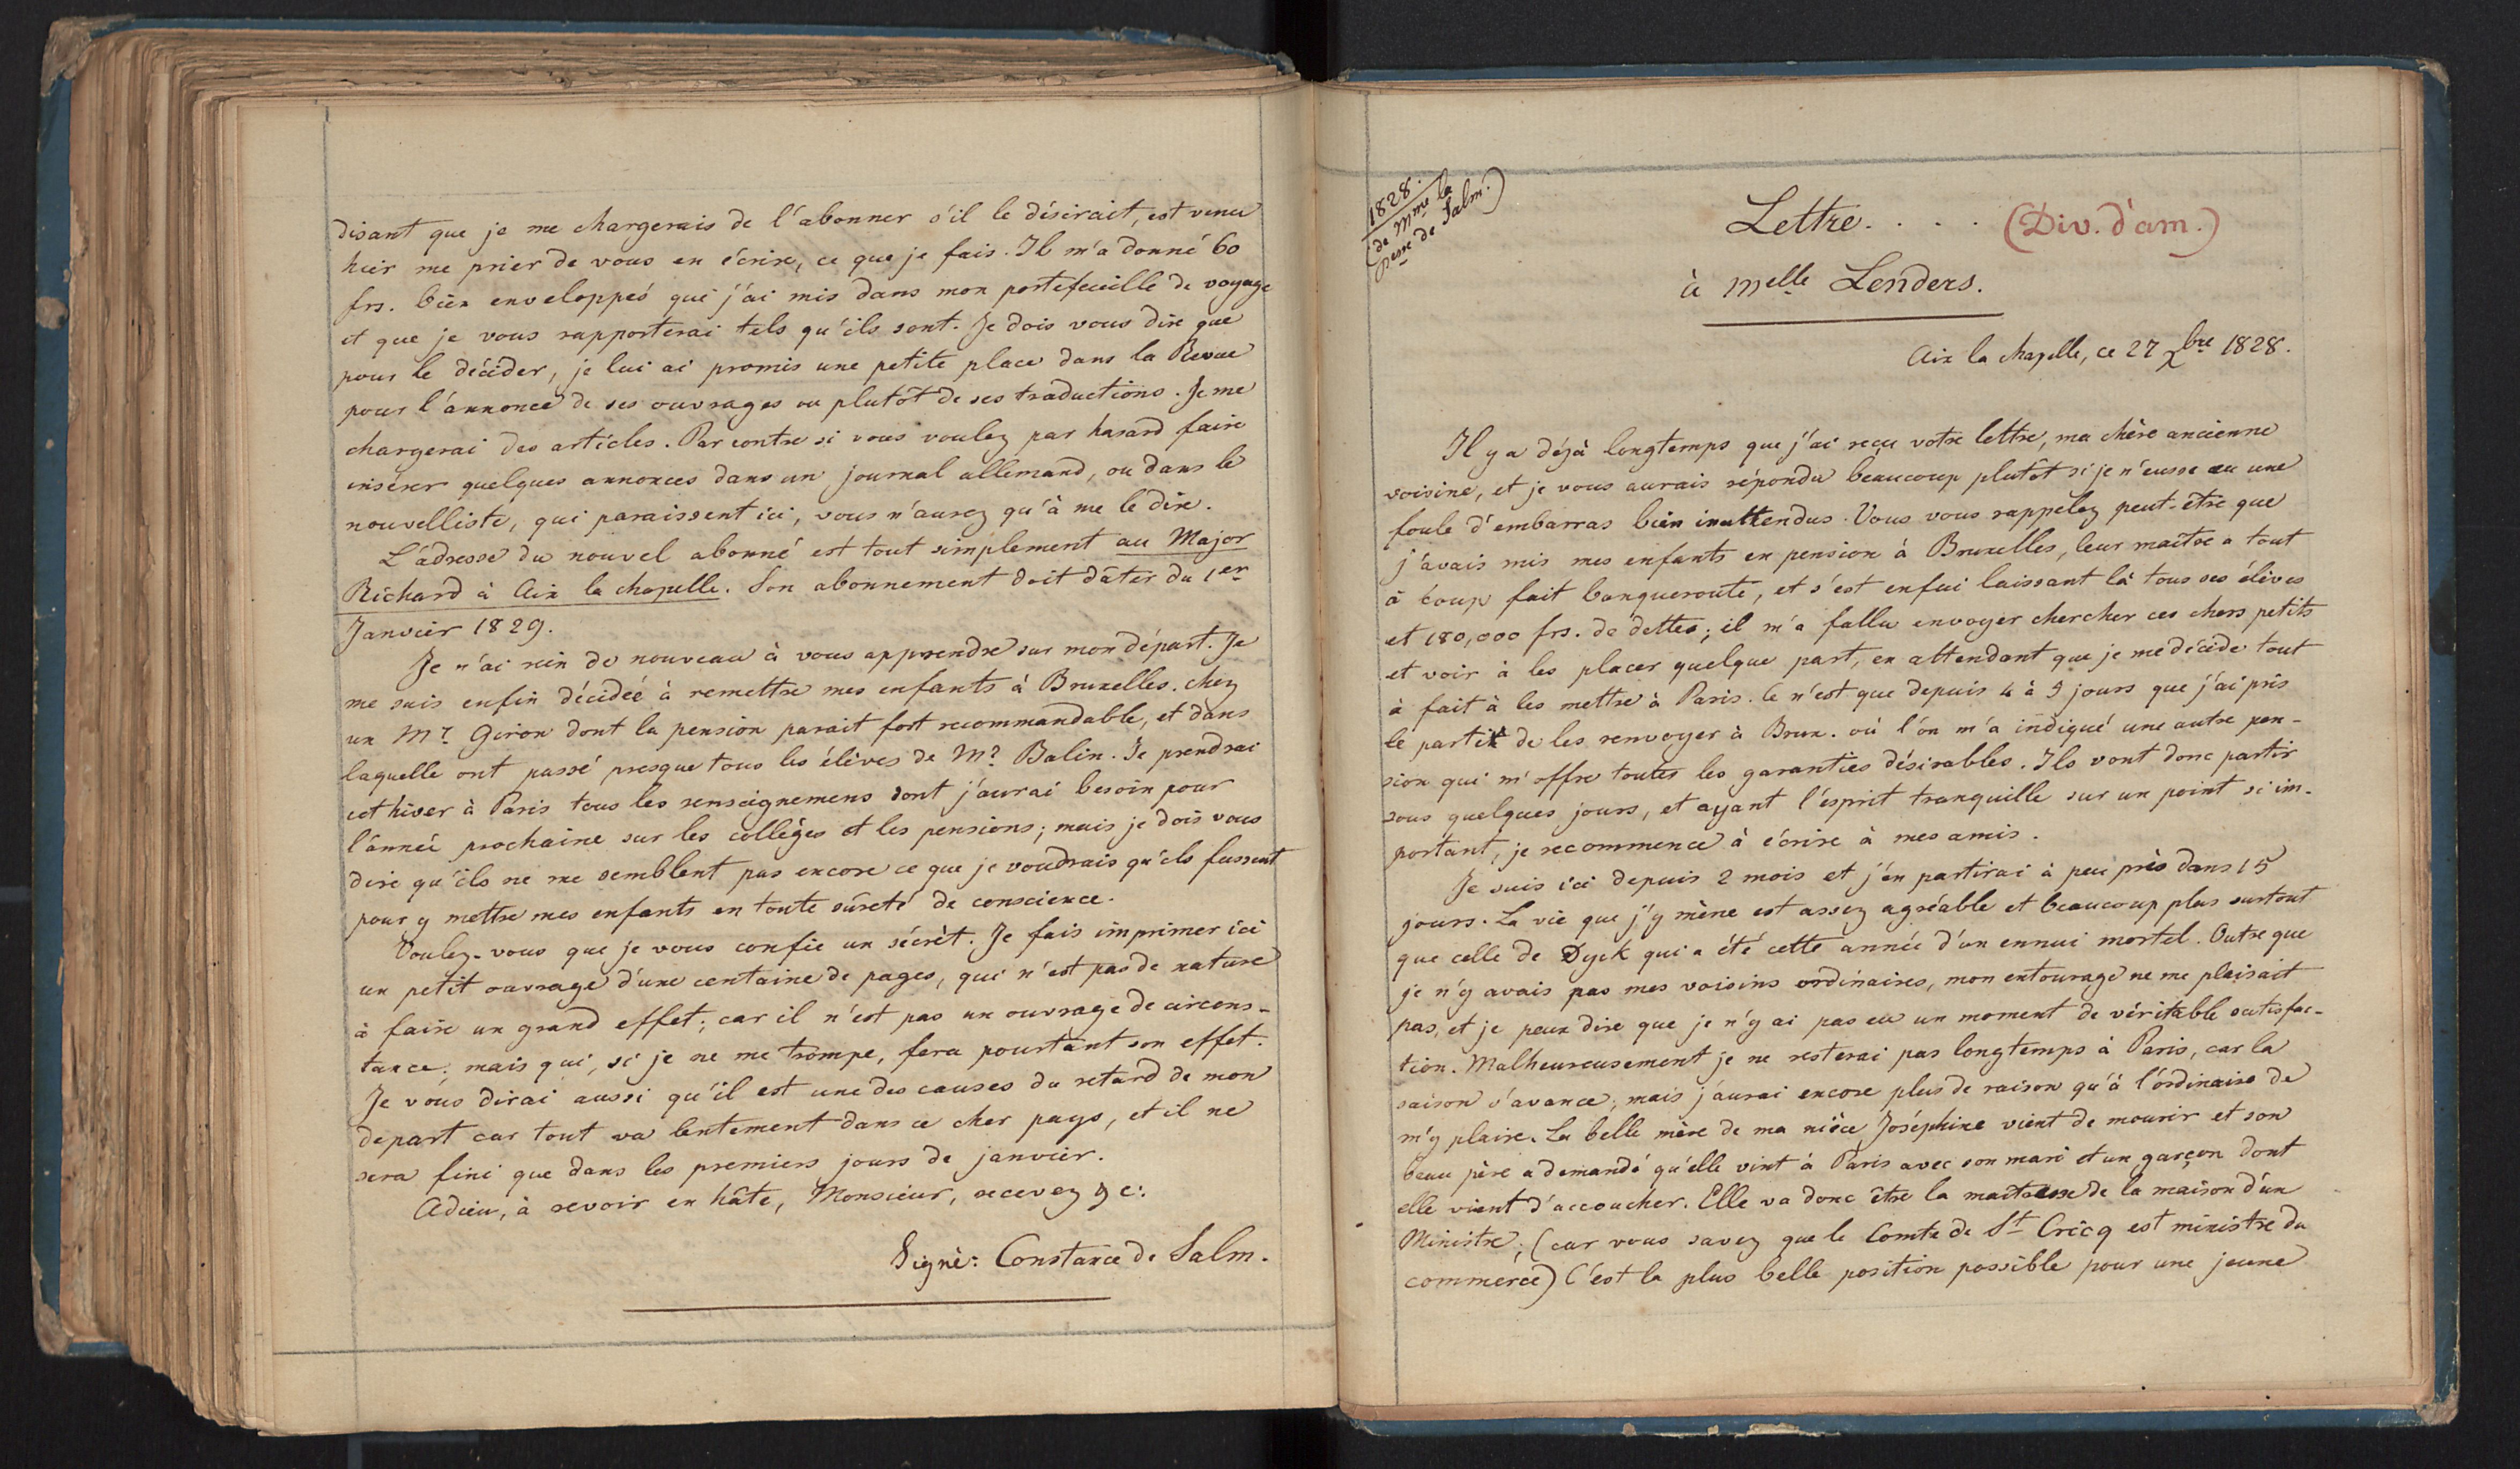 disant que je me chargerais de l'abonner s'il le désirait, est venu
hier me prier de vous en écrire, ce que je fais. Il m'a donné 60
frs. bien enveloppés que j'ai mis dans mon portefeuille de voyage
et que je vous rapporterai tels qu'ils sont. Je dois vous dire que
pour le décider, je lui ai promis une petite place dans la Revue
pour l'annonce de ses ouvrages ou plutôt de ses traductions. Je me
chargerai des articles. Par contre si vous voulez par hasard faire
insérer quelques annonces dans un journal allemand, ou dans le
nouvelliste, qui paraissent ici, vous n'aurez qu'à me le dire.
L'adresse du nouvel abonné est tout simplement au Major
Richard à Aix la chapelle. Son abonnement doit dâter du 1er
Janvier 1829.
Je n'ai rien de nouveau à vous apprendre sur mon départ. Je
me suis enfin décidée à remettre mes enfants à Bruxelles. chez
un Mr. Giron dont la pension parait fort recommandable, et dans
laquelle ont passé presque tous les élèves de Mr. Balin. Je prendrai
cet hiver à Paris tous les renseignemens dont j'aurai besoin pour
l'année prochaine sur les collèges et les pensions; mais je dois vous
dire qu'ils ne me semblent pas encore ce que je voudrais qu'ils fussent
pour y mettre mes enfants en toute sûreté de conscience.
Voulez-vous que je vous confie un sécrèt. Je fais imprimer ici
un petit ouvrage d'une centaine de pages, qui n'est pas de nature
à faire un grand effet; car il n'est pas un ouvrage de circons-
tance; mais qui, si je ne me trompe, fera pourtant son effet.
Je vous dirai aussi qu'il est une des causes du retard de mon
depart car tout va lentement dans ce cher pays, et il ne
sera fini que dans les premiers jours de janvier.
Adieu, à revoir en hâte, Monsieur, recevez &c:
Signé: Constance de Salm.
1828.
(de Mme la
Pesse de Salm.)
Lettre. . . . (Div. d'am.)
à Melle Lenders.
Aix la chapelle, ce 27 Xbre 1828.
Il y a déjà longtemps que j'ai reçu votre lettre, ma chère ancienne
voisine, et je vous aurais répondu beaucoup plutôt si je n'eusse eu une
foule d'embarras bien inattendus. Vous vous rappelez peut-être que
j'avais mis mes enfants en pension à Bruxelles, leur maître a tout
à coup fait banqueroute, et s'est enfui laissant là tous ses élèves
et 180,000 frs. de dettes; il m'a fallu envoyer chercher ces chers petits
et voir à les placer quelque part, en attendant que je me décide tout
à fait à les mettre à Paris. Ce n'est que depuis 4 à 5 jours que j'ai pris
le parti de les renvoyer à Brux. où l'on m'a indiqué une autre pen-
sion qui m'offre toutes les garanties désirables. Ils vont donc partir
sous quelques jours, et ayant l'esprit tranquille sur un point si im-
portant, je recommence à écrire à mes amis.
Je suis ici depuis 2 mois et j'en partirai à peu près dans 15
jours. La vie que j'y mène est assez agréable et beaucoup plus surtout
que celle de Dyck qui a été cette année d'un ennui mortel. Outre que
je n'y avais pas mes voisins ordinaires, mon entourage ne me plaisait
pas, et je peux dire que je n'y ai pas eu un moment de véritable satisfac-
tion. Malheureusement je ne resterai pas longtemps à Paris, car la
saison s'avance; mais j'aurai encore plus de raison qu'à l'ordinaire de
m'y plaire. La belle mère de ma nièce Joséphine vient de mourir et son
beau père a demandé qu'elle vint à Paris avec son mari et un garçon dont
elle vient d'accoucher. Elle va donc être la maitresse de la maison d'un
Ministre; (car vous savez que le Comte de St Cricq est ministre du
commerce) C'est la plus belle position possible pour une jeune